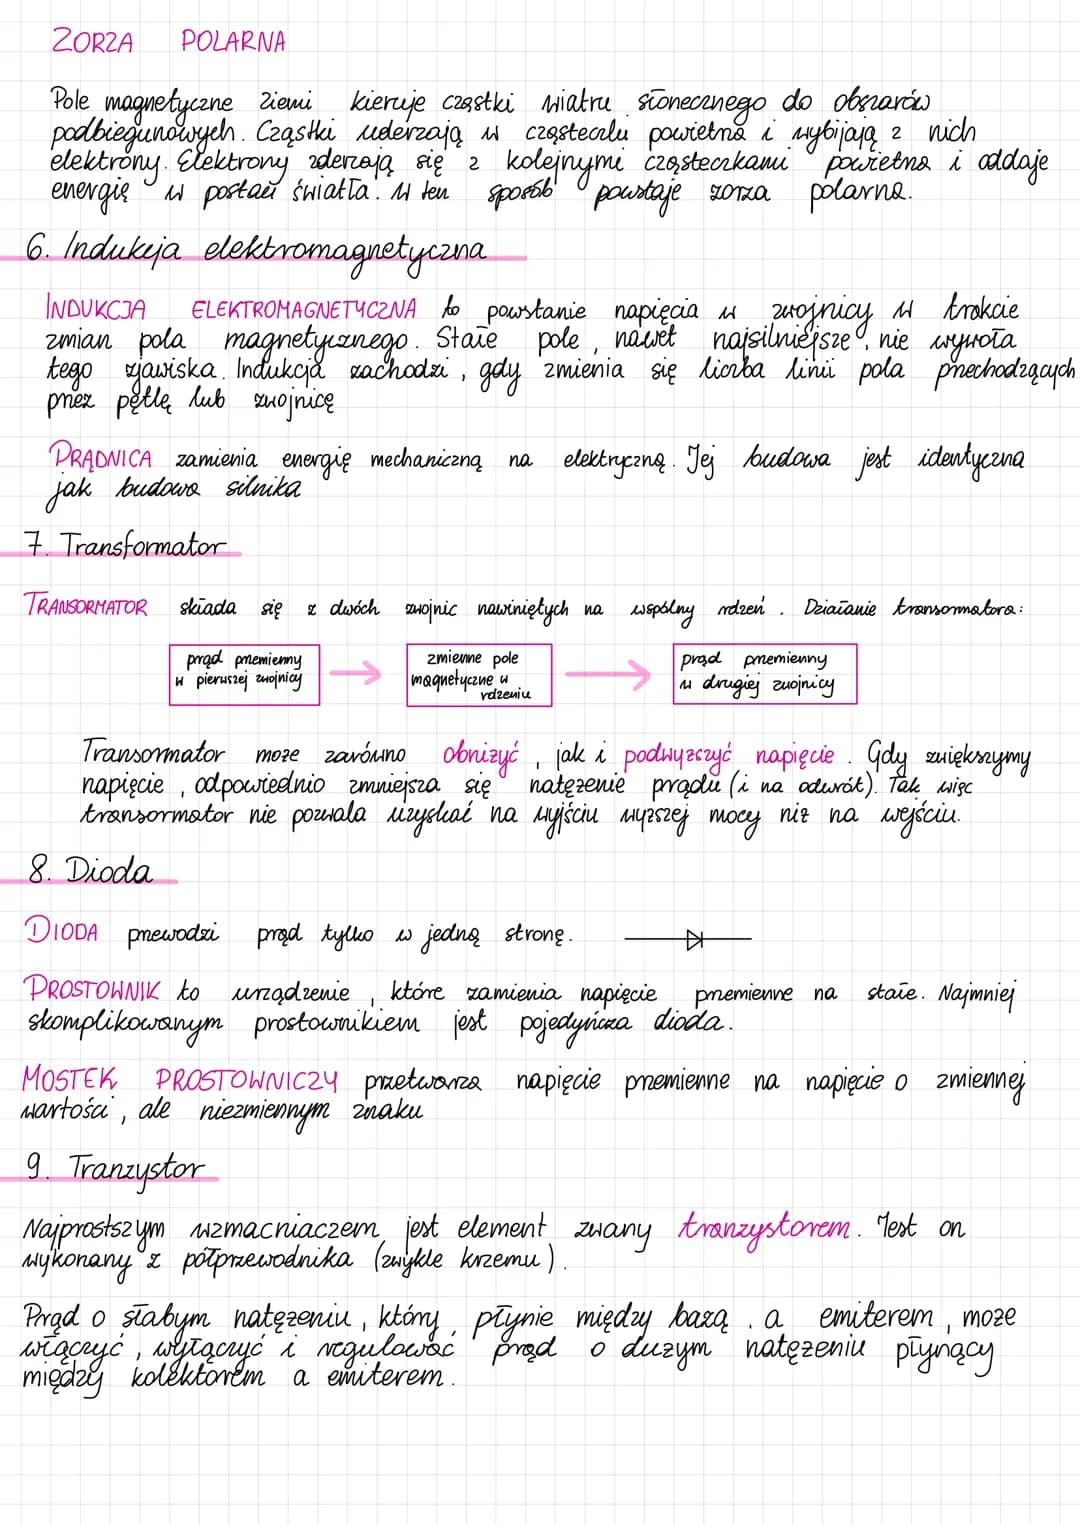 ZORZA POLARNA
Pole magnetyczne Ziemi kieruje cząstki wiatru słonecznego do obszarów
podbiegunowych. Cząstki uderzają w cząsteczki powietrza i wybijają z nich
elektrony. Elektrony zderzają się z kolejnymi cząsteczkami powietrza i oddaje
energię w postaci światła. W ten sposób powstaje zorza polarna.
6. Indukcja elektromagnetyczna
INDUKCJA ELEKTROMAGNETYCZNA to powstanie napięcia w zwojnicy w trakcie
zmian pola magnetycznego. Stałe pole, nawet najsilniejsze, nie wywoła
tego zjawiska. Indukcja zachodzi, gdy zmienia się liczba linii pola przechodzących
przez pętlę lub zwojnicę
PRĄDNICA zamienia energię mechaniczną na elektryczną. Jej budowa jest identyczna
jak budowa silnika
7. Transformator
TRANSORMATOR składa się z dwóch zwojnic nawiniętych na wspólny rdzeń. Działanie transormatora:
prąd przemienny
w pierwszej zwojnicy
zmienne pole
magnetyczne w
rdzeniu
prąd przemienny
w drugiej zwojnicy
Transormator może zarówno obniżyć, jak i podwyższyć napięcie. Gdy zwiększymy
napięcie, odpowiednio zmniejsza się natężenie prądu (i na odwrót). Tak więc
transormator nie pozwala uzyskać na wyjściu wyższej mocy niż na wejściu.
8. Dioda
DIODA przewodzi prąd tylko w jedną stronę.
PROSTOWNIK to urządzenie, które zamienia napięcie przemienne na stałe. Najmniej
skomplikowanym prostownikiem jest pojedyńcza dioda.
MOSTEK PROSTOWNICZY przetwarza napięcie przemienne na napięcie o zmiennej
wartości, ale niezmiennym znaku
9. Tranzystor
Najprostszym wzmacniaczem jest element zwany tranzystorem. Jest on
wykonany z półprzewodnika (zwykle krzemu).
Prąd o słabym natężeniu, który płynie między bazą, a emiterem, może
włączyć, wyłączyć i regulować prąd o dużym natężeniu płynący
między kolektorem a emiterem.